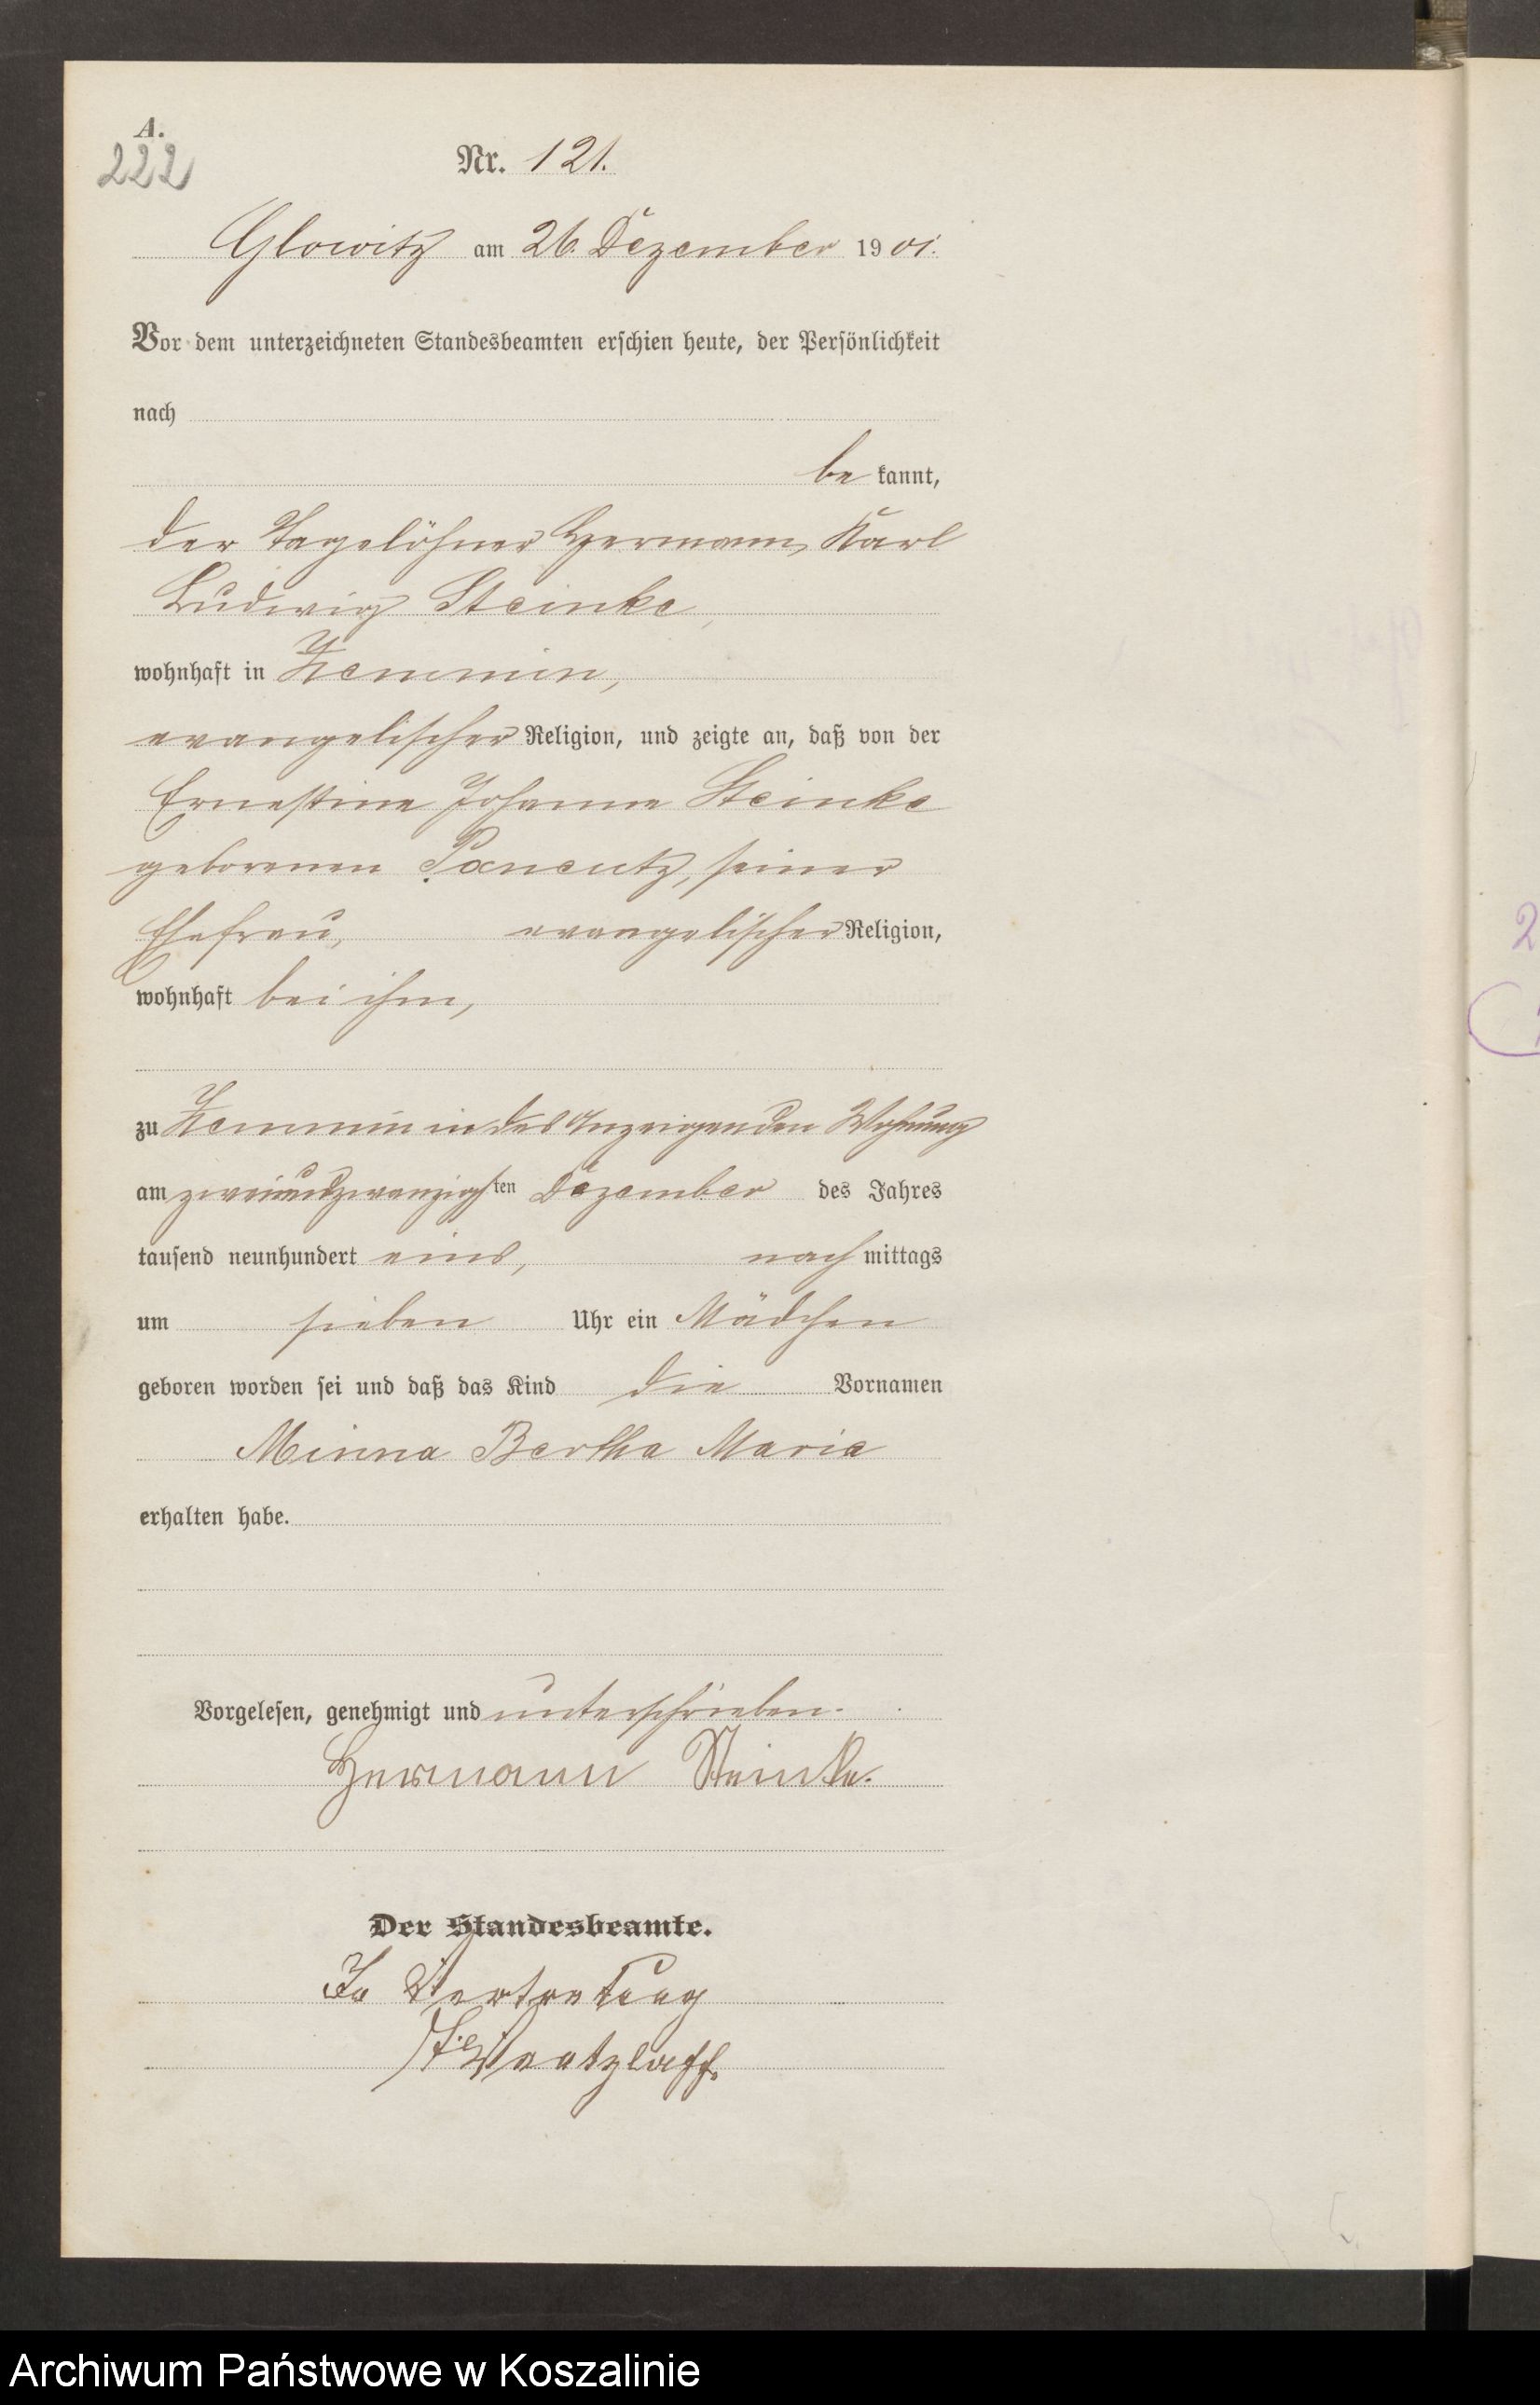 A.
222
Nr. 121.
Glowitz am 26. Dezember 1901.
Vor dem unterzeichneten Standesbeamten erschien heute, der Persönlichkeit
nach
be kannt,
der Tagelöhner Hermann Karl
Ludwig Steinke,
wohnhaft in Zemmin,
evangelischer Religion, und zeigte an, daß von der
Ernestine Johanne Steinke
geborenen seiner
Ehefrau, evangelischer Religion,
wohnhaft bei ihm,
zu Zemmin in des Anzeigenden Wohnung
am zweiundzwanzigsten Dezember des Jahres
tausend neunhundert eins, nach mittags
um sieben Uhr ein Mädchen
geboren worden sei und daß das Kind die Vornamen
Minna Bertha Marie
erhalten habe.
Vorgelesen, genehmigt und unterschrieben.
Hermann Steinke.
Der Standesbeamte.
In Vertretung
Wentzlaff.
2
Archiwum Państwowe w Koszalinie